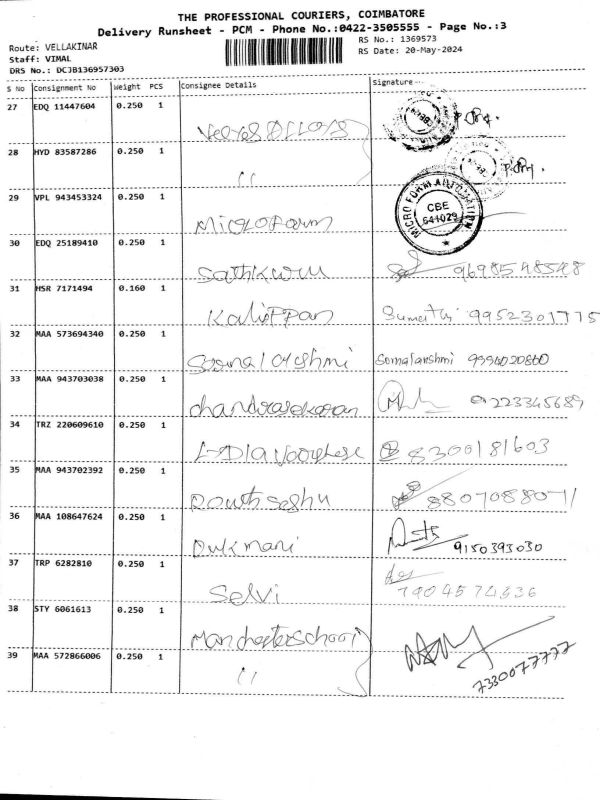 THE PROFESSIONAL COURIERS, COIMBATORE
Delivery Runsheet - PCM - Phone No.:0422-3505555 - Page No.:3
Route: VELLAKINAR
RS No.: 1369573
Staff: VIMAL
RS Date: 20-May-2024
DRS No.: DCJB136957303
S No Consignment No Weight PCS Consignee Details Signature
27 EDQ 11447604 0.250 1
28 HYD 83587286 0.250 1 "
29 VPL 943453324 0.250 1 Microform
MICRO FORM AUTOMATION
CBE
641029
30 EDQ 25189410 0.250 1
31 HSR 7171494 0.160 1 Kalippan Sumathi 9952301775
32 MAA 573694340 0.250 1 Somalakshmi 9994020860
33 MAA 943703038 0.250 1 chandrasekaran 9223345689
34 TRZ 220609610 0.250 1 8300181603
35 MAA 943702392 0.250 1 8807088071
36 MAA 108647624 0.250 1 Rukmani 9150393030
37 TRP 6282810 0.250 1 Selvi 7904574336
38 STY 6061613 0.250 1 Manchesterschool
39 MAA 572866006 0.250 1 " 7330077777